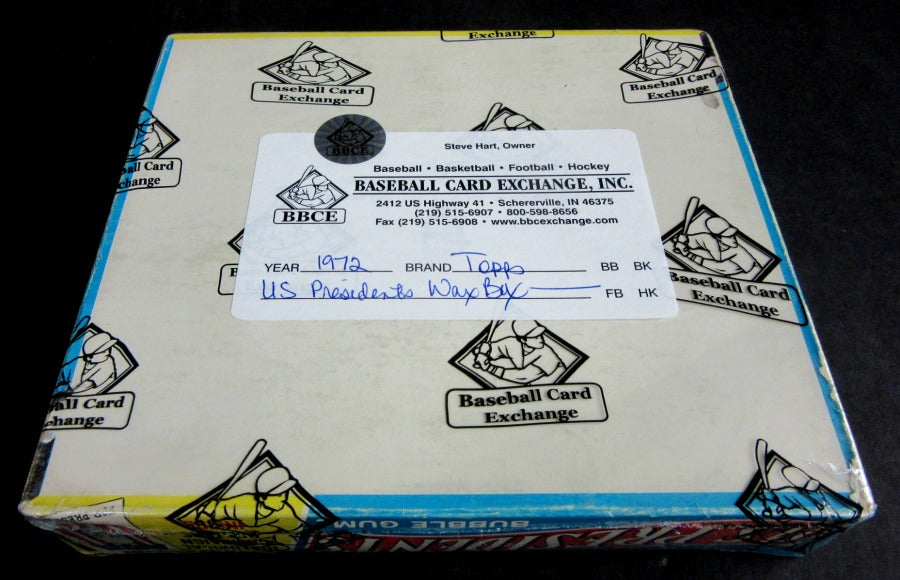 Exchange
Baseball Card
Exchange
Baseball Card
Exchange
all Card
hange
BBCE
Steve Hart, Owner
Baseball • Basketball • Football • Hockey
BASEBALL CARD EXCHANGE, INC.
BBCE
2412 US Highway 41 • Schererville, IN 46375
(219) 515-6907 • 800-598-8656
Fax (219) 515-6908 • www.bbcexchange.com
YEAR 1972 BRAND Topps BB BK
US Presidents Wax Box FB HK
Baseball Card
Exchange
all Card
hange
Baseball Card
Exchange
BUBBLE GUM
PRESIDENT